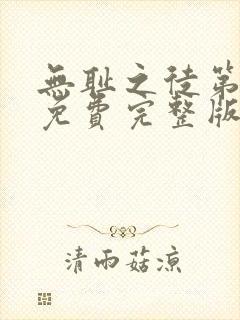 無耻之徒第
免費完整版
清雨菇凉